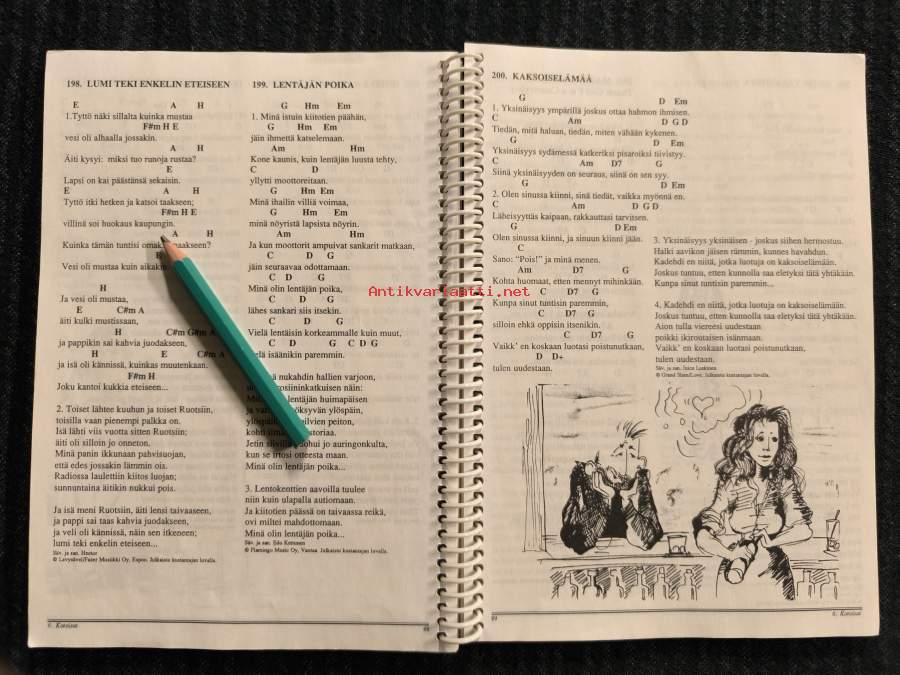 198. LUMI TEKI ENKELIN ETEISEEN
E A H
1.Tyttö näki sillalta kuinka mustaa
F#m H E
vesi oli alhaalla jossakin.
A H
Äiti kysyi: miksi tuo runoja rustaa?
E
Lapsi on kai päästänsä sekaisin.
E A H
Tyttö itki hetken ja katsoi taakseen;
F#m H E
villinä soi huokaus kaupungin.
A H
Kuinka tämän tuntisi
Vesi oli mustaa kuin
H
Ja vesi oli mustaa,
E C#m A
äiti kulki mustissaan,
H C#m G#m A
ja pappikin sai kahvia juodakseen,
H E C#m A
ja isä oli kännissä, kuinkas muutenkaan.
F#m H
Joku kantoi kukkia eteiseen...
2. Toiset lähtee kuuhun ja toiset Ruotsiin,
toisilla vaan pienempi palkka on.
Isä lähti viis vuotta sitten Ruotsiin;
äiti oli silloin jo onneton.
Minä panin ikkunaan pahvisuojan,
että edes jossakin lämmin ois.
Radiossa laulettiin kiitos luojan;
sunnuntaina äitikin nukkui pois.
Ja isä meni Ruotsiin, äiti lensi taivaaseen,
ja pappi sai taas kahvia juodakseen,
ja veli oli kännissä, näin sen itkeneen;
lumi teki enkelin eteiseen...
Säv. ja san. Hector
© Lavymbel/Fazer Musiikki Oy, Espoo. Julkaistu kustantajan luvalla.
6. Kotoisat
199. LENTÄJÄN POIKA
G Hm Em
1. Minä istuin kiitotien päähän,
G Hm Em
jäin ihmettä katselemaan.
Am Hm
Kone kaunis, kuin lentäjän luusta tehty,
C D
yllytti moottoreitaan.
G Hm Em
Minä ihailin villiä voimaa,
G Hm Em
minä nöyristä lapsista nöyrin.
Am Hm
Ja kun moottorit ampuivat sankarit matkaan,
C D G
jäin seuraavaa odottamaan.
C D G
Minä olin lentäjän poika,
C D G
lähes sankari siis itsekin.
C D G
Vielä lentäisin korkeammalle kuin muut,
C D G C D G
isäänikin paremmin.
nukahdin hallien varjoon,
kerosiininkatkuisen näin:
Mu lentäjän huimapäisen
ja syöksyvän ylöspäin,
pilvien peiton,
historiaa.
Jetin siivillä hohui jo auringonkulta,
kun se irtosi otteesta maan.
Minä olin lentäjän poika...
3. Lentokenttien aavoilla tuulee
niin kuin ulapalla autiomaan.
Ja kiitotien päässä on taivaassa reikä,
ovi miltei mahdottomaan.
Minä olin lentäjän poika...
Säv. ja san. Edu Kettunen
© Flamingo Music Oy, Vantaa. Julkaistu kustantajan luvalla.
200. KAKSOISELÄMÄÄ
G D Em
1. Yksinäisyys ympärillä joskus ottaa hahmon ihmisen.
C Am D G D
Tiedän, mitä haluan, tiedän, miten vähään kykenen.
G D Em
Yksinäisyys sydämessä katkeriksi pisaroiksi tiivistyy.
C Am D7 G
Siinä yksinäisyyden on seuraus, siinä on sen syy.
G D Em
2. Olen sinussa kiinni, sinä tiedät, vaikka myönnä en.
C Am D G D
Läheisyyttäs kaipaan, rakkauttasi tarvitsen.
G D Em
Olen sinussa kiinni, ja sinuun kiinni jään.
C
Sano: "Pois!" ja minä menen.
Am D7 G
Kohta huomaat, etten mennyt mihinkään.
C D7 G
Kunpa sinut tuntisin paremmin,
C D7 G
silloin ehkä oppisin itsenikin.
C D7 G
Vaikk' en koskaan luotasi poistunutkaan,
D D+
tulen uudestaan.
3. Yksinäisyys yksinäisen - joskus siihen hermostuu.
Halki aavikon jäisen rämmin, kunnes havahdun.
Kadehdi en niitä, jotka luotuja on kaksoiselämään.
Joskus tuntuu, etten kunnolla saa eletyksi tätä yhtäkään.
Kunpa sinut tuntisin paremmin...
4. Kadehdi en niitä, jotka luotuja on kaksoiselämään.
Joskus tuntuu, etten kunnolla saa eletyksi tätä yhtäkään.
Aion tulla viereesi uudestaan
poikki ikiroutaisen isänmaan.
Vaikk' en koskaan luotasi poistunutkaan,
tulen uudestaan.
Säv. ja san. Juice Leskinen
© Grand Slam/Love. Julkaistu kustantajan luvalla.
6. Kotoisat
Antikvariaatti.net